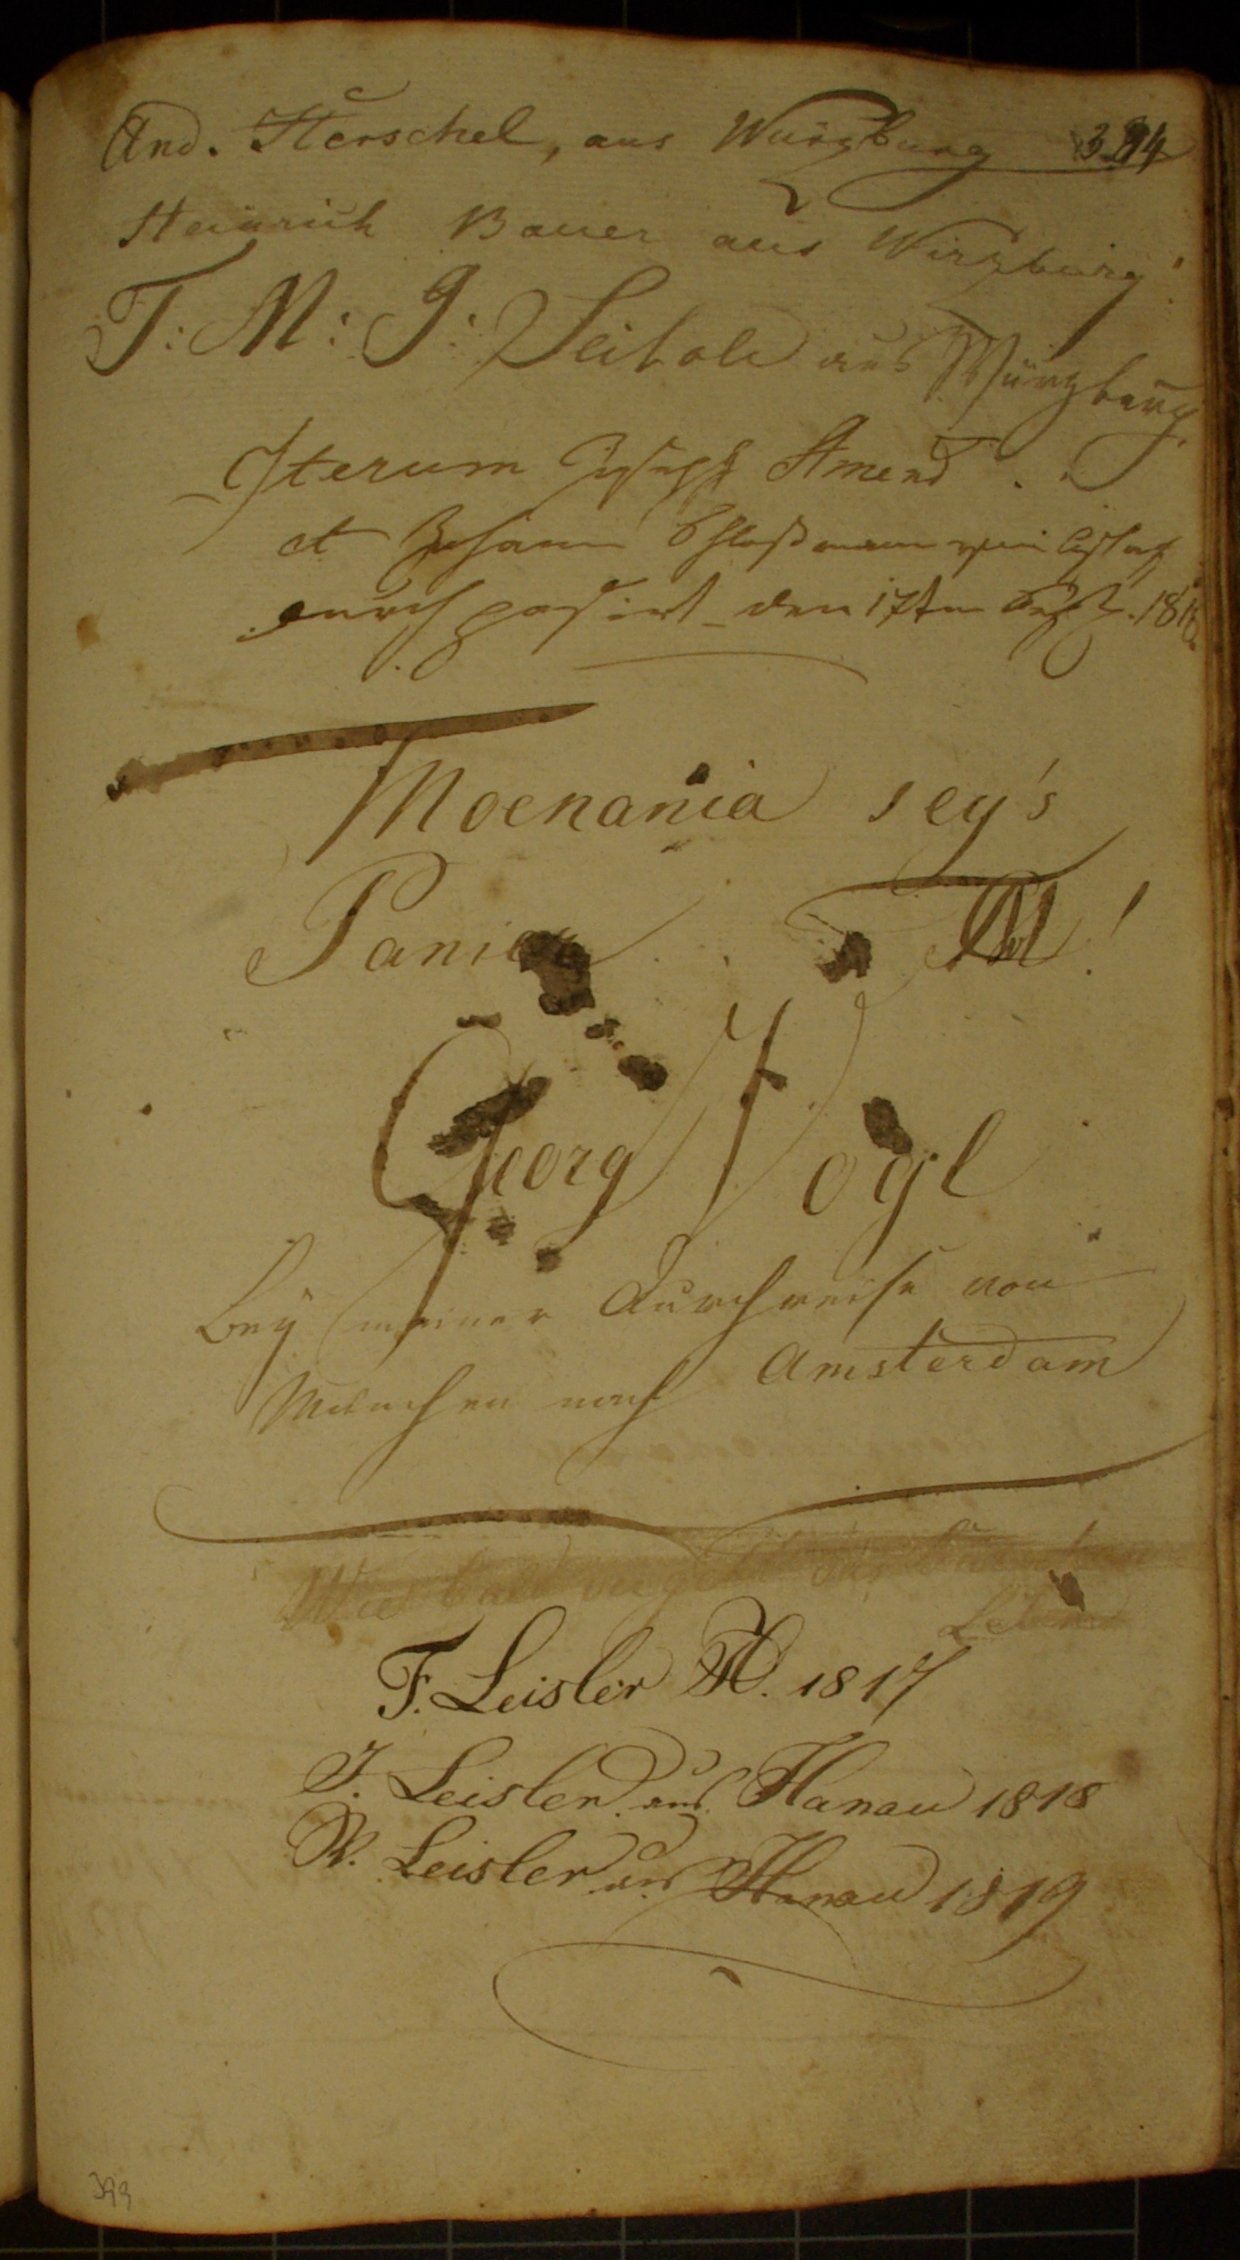 And. Herschel, aus Würzburg 394
Heinrich Bauer aus Wirzburg!
T: M: J: Seibold aus Würzburg.
Iterum Joseph Amend.
et Johann Schloßmann von
durch pasirt den 17ten Sept. 181
Moenania sey's
Panier
Georg Vogl
bey meiner Durchreise von
München nach Amsterdam
Wie bald vergeht des
Leben
F. Leisler H. 1817
J. Leisler aus Hanau 1818
W. Leisler aus Hanau 1819
399